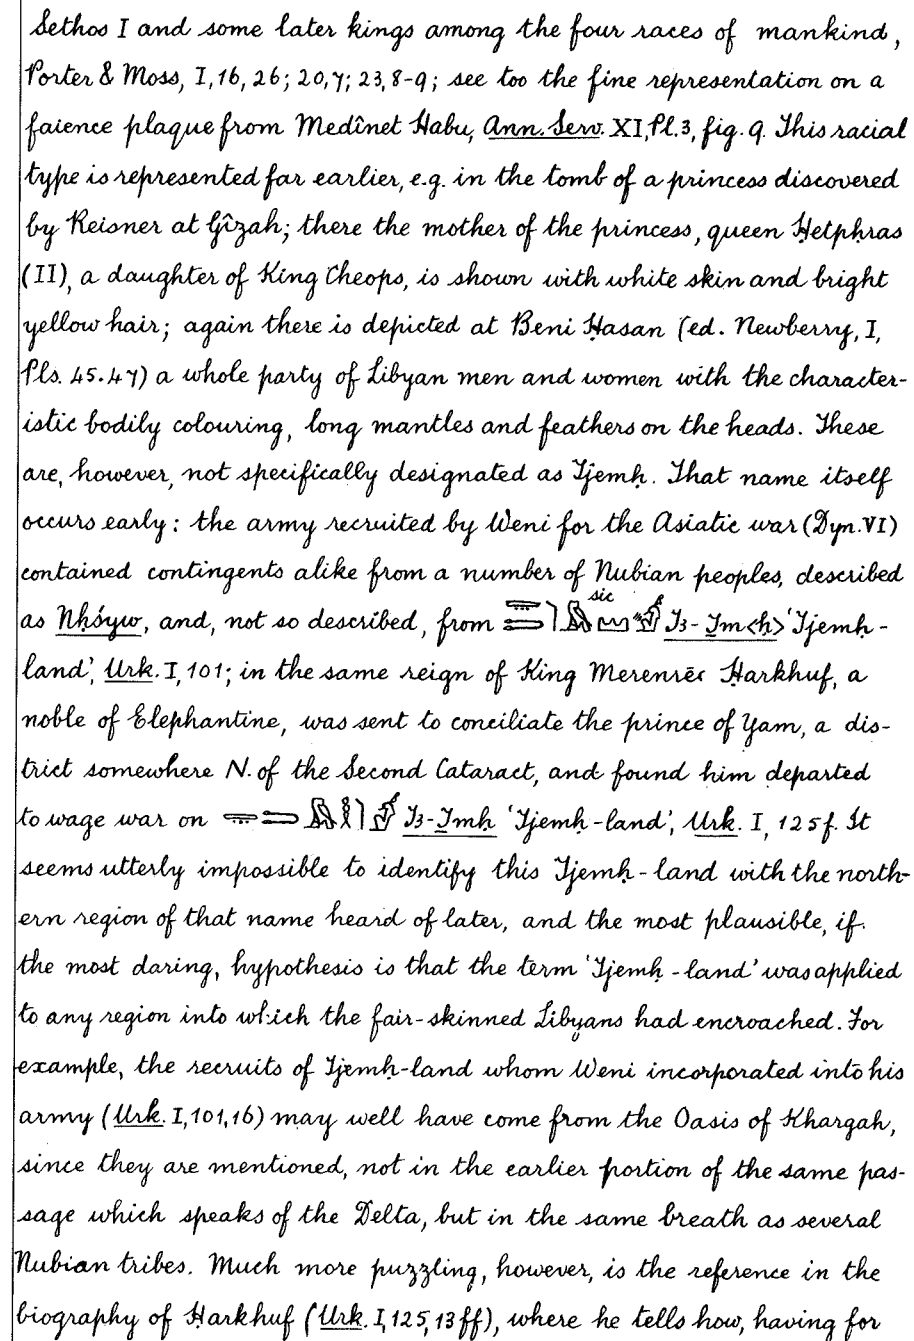 Sethos I and some later kings among the four races of mankind,
Porter & Moss, I, 16, 26; 20, 7; 23, 8-9; see too the fine representation on a
faience plaque from Medînet Habu, Ann. Serv. XI, Pl. 3, fig. 9. This racial
type is represented far earlier, e.g. in the tomb of a princess discovered
by Reisner at Gîzah; there the mother of the princess, queen Ḥetpḥras
(II), a daughter of King Cheops, is shown with white skin and bright
yellow hair; again there is depicted at Beni Ḥasan (ed. Newberry, I,
Pls. 45.47) a whole party of Libyan men and women with the character-
istic bodily colouring, long mantles and feathers on the heads. These
are, however, not specifically designated as Tjemḥ. That name itself
occurs early: the army recruited by Weni for the Asiatic war (Dyn. VI)
contained contingents alike from a number of Nubian peoples, described
sic
as Nḥśyw, and, not so described, from Tꜣ-Ṯm<ḥ> 'Tjemḥ-
land', Urk. I, 101; in the same reign of King Merenrēꜥ Ḥarkhuf, a
noble of Elephantine, was sent to conciliate the prince of Yam, a dis-
trict somewhere N. of the Second Cataract, and found him departed
to wage war on Tꜣ-Ṯmḥ 'Tjemḥ-land', Urk. I, 125 f. It
seems utterly impossible to identify this Tjemḥ-land with the north-
ern region of that name heard of later, and the most plausible, if
the most daring, hypothesis is that the term 'Tjemḥ-land' was applied
to any region into which the fair-skinned Libyans had encroached. For
example, the recruits of Tjemḥ-land whom Weni incorporated into his
army (Urk. I, 101, 16) may well have come from the Oasis of Khargah,
since they are mentioned, not in the earlier portion of the same pas-
sage which speaks of the Delta, but in the same breath as several
Nubian tribes. Much more puzzling, however, is the reference in the
biography of Ḥarkhuf (Urk. I, 125, 13 ff), where he tells how, having for